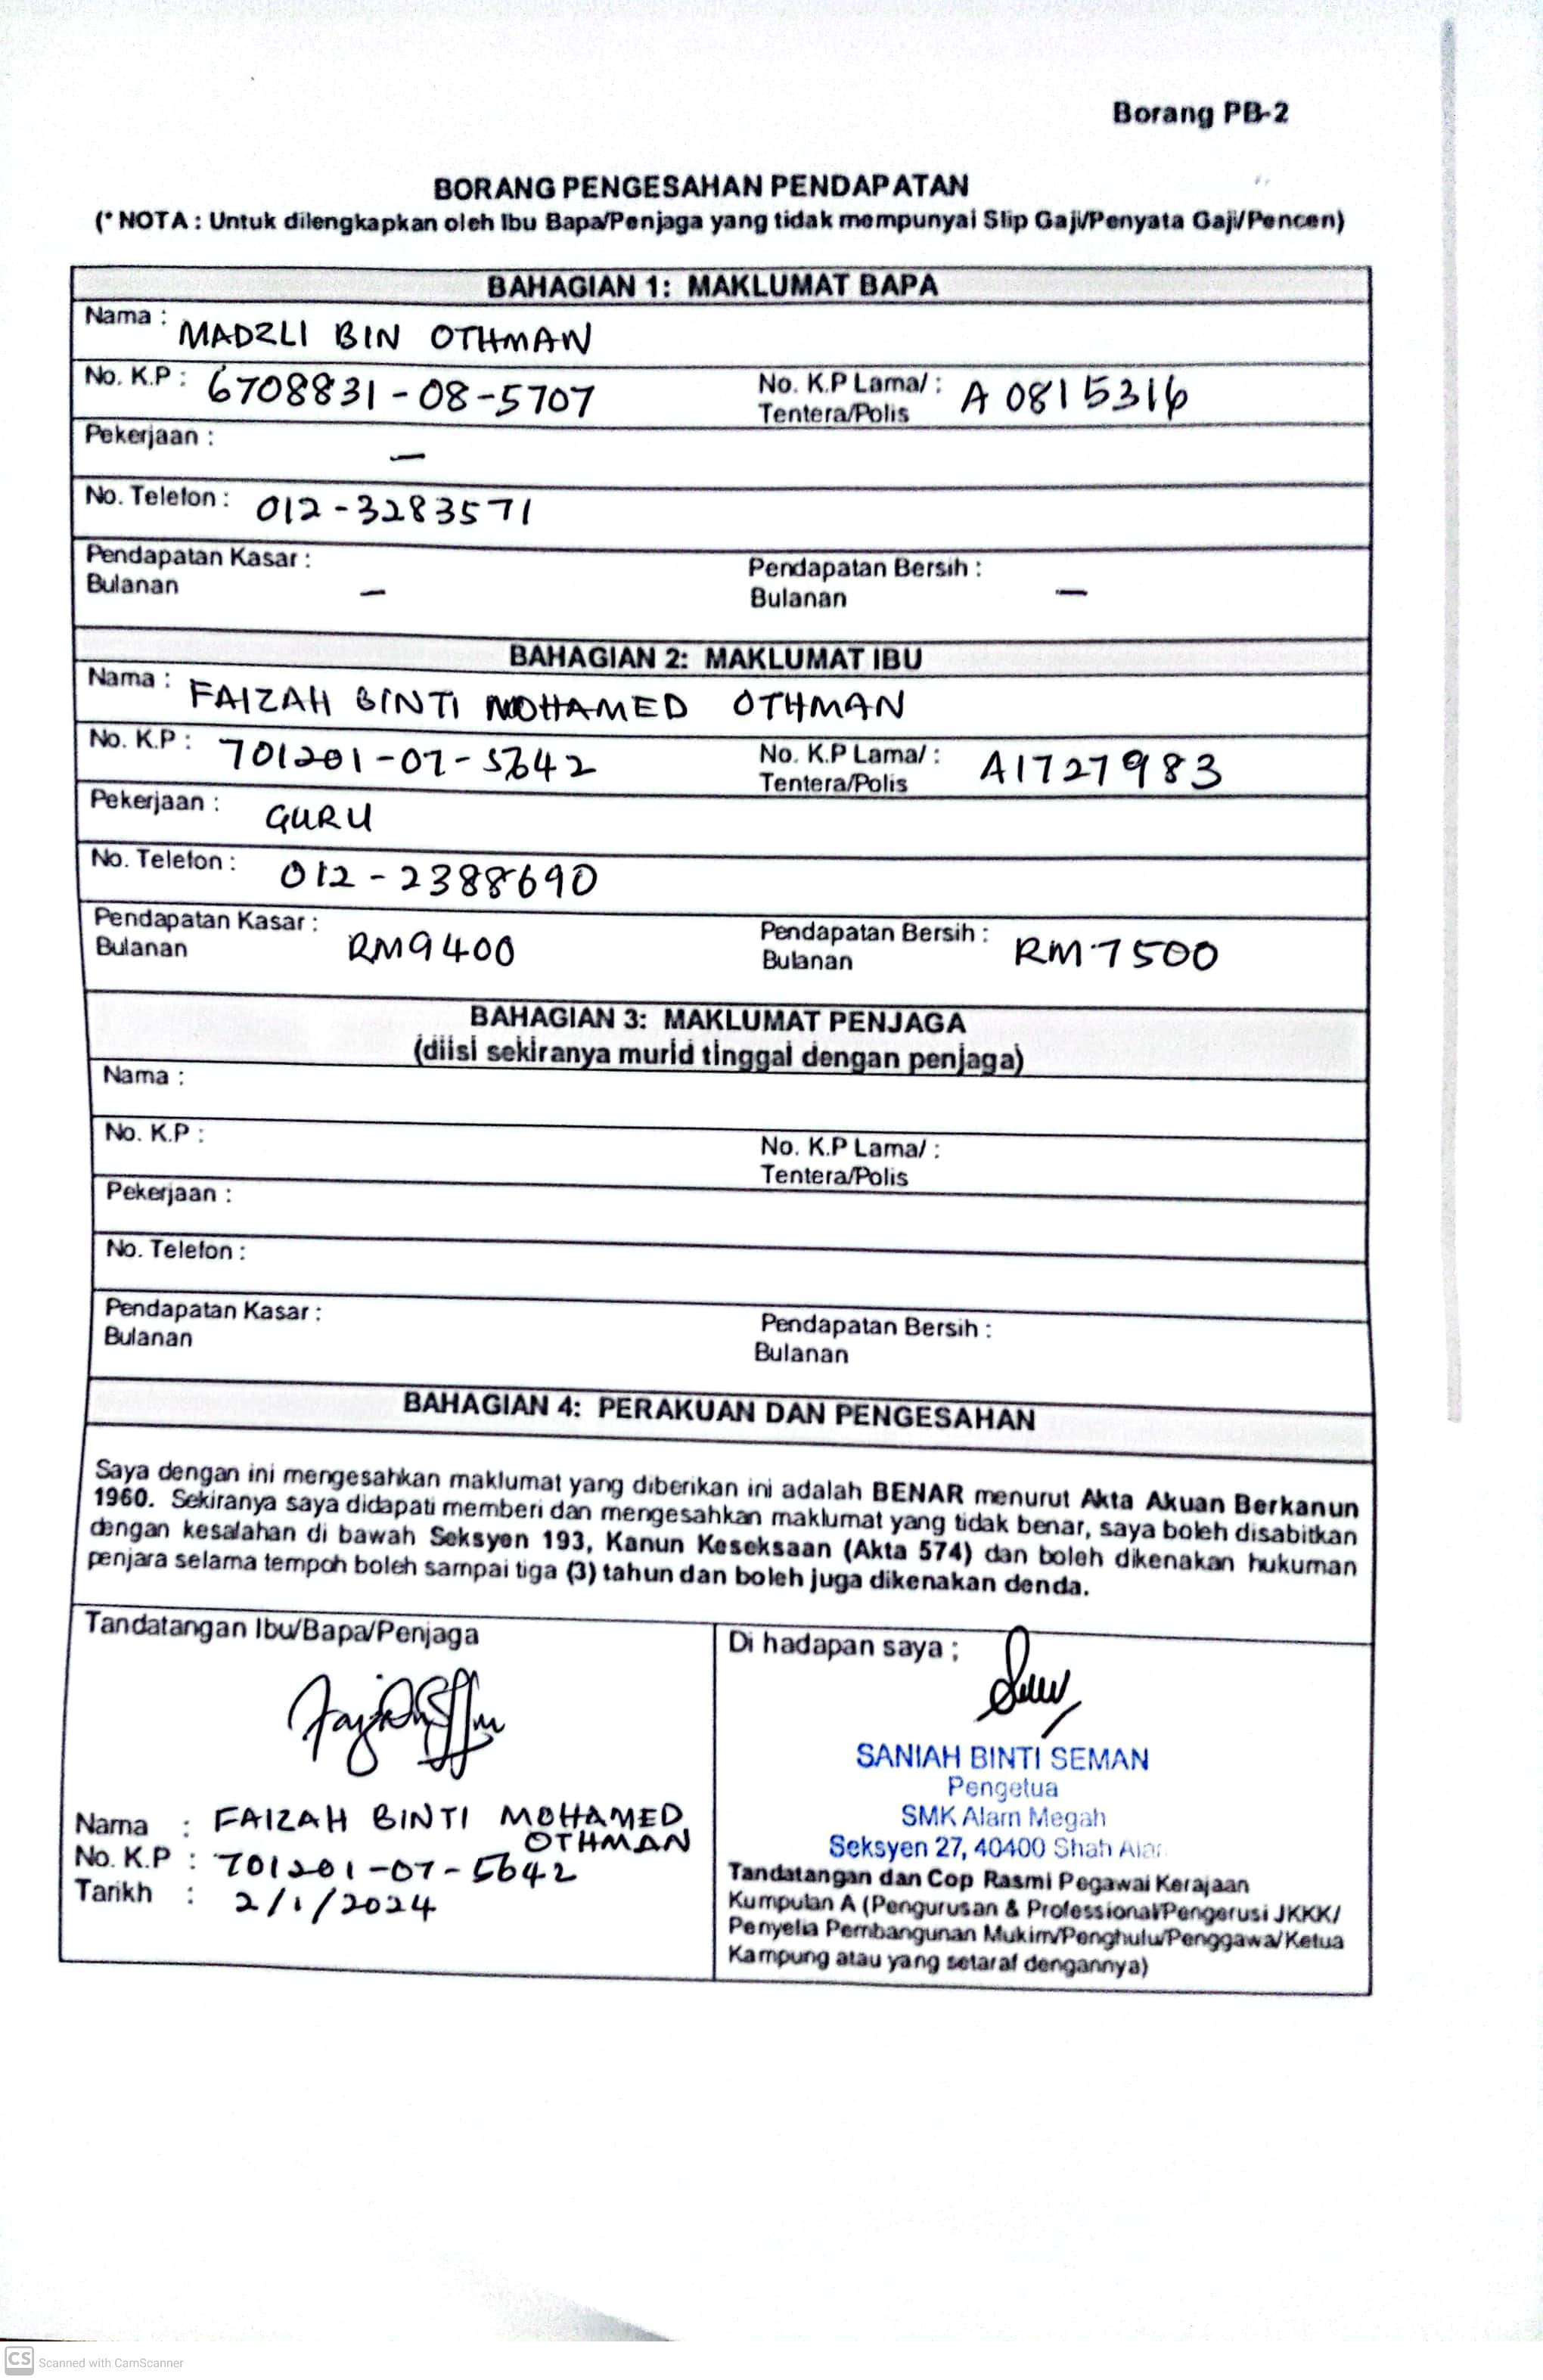 Borang PB-2
BORANG PENGESAHAN PENDAPATAN
(* NOTA : Untuk dilengkapkan oleh Ibu Bapa/Penjaga yang tidak mempunyai Slip Gaji/Penyata Gaji/Pencen)
BAHAGIAN 1: MAKLUMAT BAPA
Nama : MADZLI BIN OTHMAN
No. K.P : 6708831-08-5707 No. K.P Lama/ : A 0815316
Tentera/Polis
Pekerjaan : –
No. Telefon : 012-3283571
Pendapatan Kasar : – Pendapatan Bersih : –
Bulanan Bulanan
BAHAGIAN 2: MAKLUMAT IBU
Nama : FAIZAH BINTI MOHAMED OTHMAN
No. K.P : 701201-07-5642 No. K.P Lama/ : A1727983
Tentera/Polis
Pekerjaan : GURU
No. Telefon : 012-2388690
Pendapatan Kasar : RM9400 Pendapatan Bersih : RM7500
Bulanan Bulanan
BAHAGIAN 3: MAKLUMAT PENJAGA
(diisi sekiranya murid tinggal dengan penjaga)
Nama :
No. K.P : No. K.P Lama/ :
Tentera/Polis
Pekerjaan :
No. Telefon :
Pendapatan Kasar : Pendapatan Bersih :
Bulanan Bulanan
BAHAGIAN 4: PERAKUAN DAN PENGESAHAN
Saya dengan ini mengesahkan maklumat yang diberikan ini adalah BENAR menurut Akta Akuan Berkanun
1960. Sekiranya saya didapati memberi dan mengesahkan maklumat yang tidak benar, saya boleh disabitkan
dengan kesalahan di bawah Seksyen 193, Kanun Keseksaan (Akta 574) dan boleh dikenakan hukuman
penjara selama tempoh boleh sampai tiga (3) tahun dan boleh juga dikenakan denda.
Tandatangan Ibu/Bapa/Penjaga
Nama : FAIZAH BINTI MOHAMED
OTHMAN
No. K.P : 701201-07-5642
Tarikh : 2/1/2024
Di hadapan saya ;
SANIAH BINTI SEMAN
Pengetua
SMK Alam Megah
Seksyen 27, 40400 Shah Alam
Tandatangan dan Cop Rasmi Pegawai Kerajaan
Kumpulan A (Pengurusan & Professional/Pengerusi JKKK/
Penyelia Pembangunan Mukim/Penghulu/Penggawa/Ketua
Kampung atau yang setaraf dengannya)
CS Scanned with CamScanner